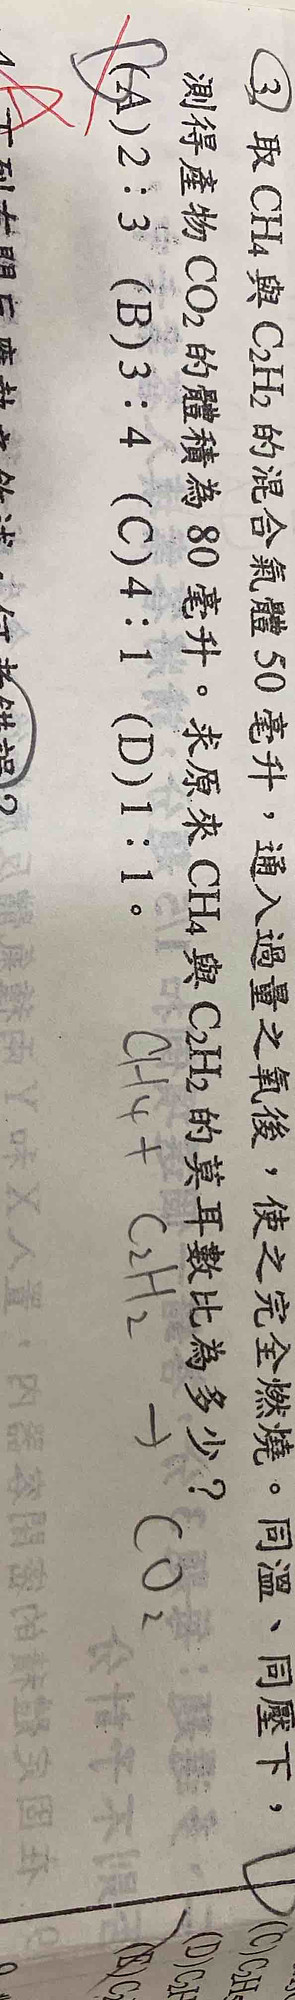 3、取CH4與C2H2的混合氣體50毫升，通入過量之氧後，使之完全燃燒。同溫、同壓下，
測得產物CO2的體積為80毫升。求原來CH4與C2H2的莫耳數比為多少？
(A)2：3 (B)3：4 (C)4：1 (D)1：1。
CH4 + C2H2 → CO2
何者錯誤？
(C)C2H
(D)C2H